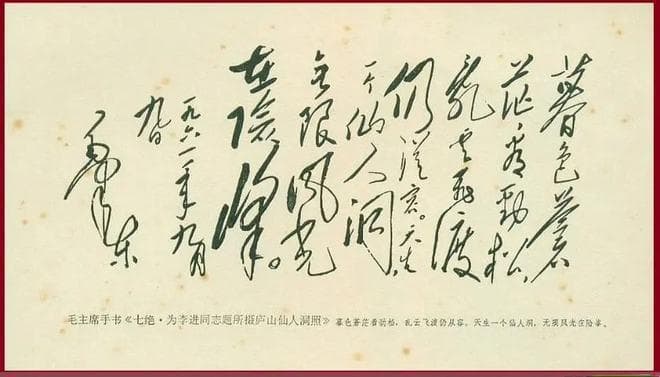 暮色蒼
茫看勁松
乱云飞渡
仍從容。天生
一个仙人洞
无限風光
在險峰。
一九六一年九月
九日
毛泽东
毛主席手书《七绝·为李进同志题所摄庐山仙人洞照》 暮色苍茫看劲松，乱云飞渡仍从容。天生一个仙人洞，无限风光在险峰。